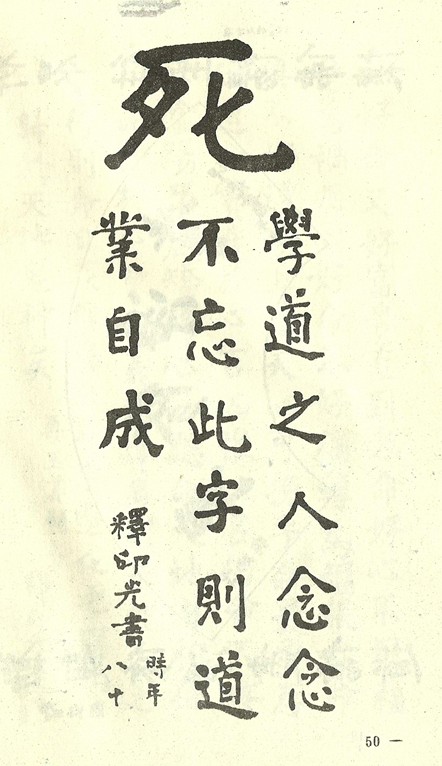 死
學道之人念念
不忘此字則道
業自成
釋印光書
時年
八十
50 一